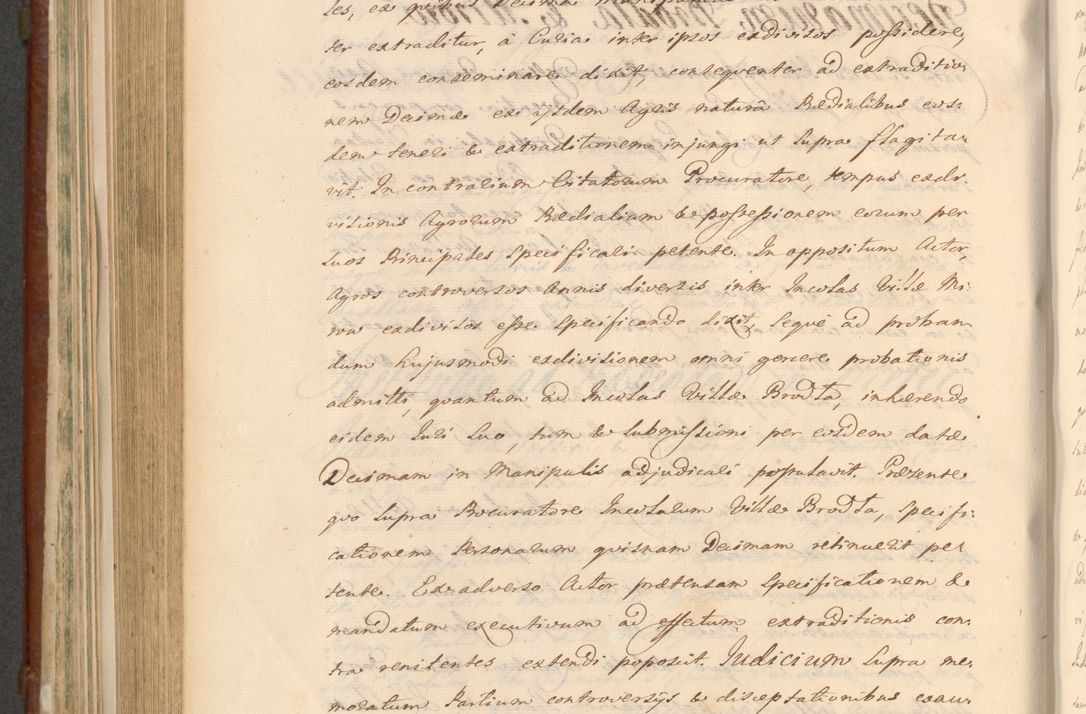 les, ex quibus Decima Manipula
ter extraditur, à Curia inter ipsos exdivisos possidere,
eosdem conseminare dixit, consequenter ad extraditio-
nem Decimæ ex ijsdem Agris naturâ Prædialibus eos-
dem teneri & extraditionem injungi ut supra flagita-
vit. In contrarium Citatorum Procuratore, tempus exdi-
visionis Agrorum Prædialium & possessionem eorum per
suos Principales specificari petente. In oppositum Actor,
Agros controversos Annis diversis inter Incolas Villæ Mi-
row exdivisos esse specificando dixit, seque ad proban-
dum hujusmodi exdivisionem omni genere probationis
admitti, quantum ad Incolas Villæ Brodła, inhærendo
eidem Juri suo, tum & submissioni per eosdem datæ
Decimam in Manipulis adjudicari postulavit. Præsente
quo supra Procuratore Incolarum Villæ Brodła, specifi-
cationem Personarum quisnam Decimam retinuerit pe-
tente. Ex adverso Actor prætensam specificationem &
mandatum executivum ad effectum extraditionis con-
tra renitentes extendi poposcit. Judicium supra me-
moratum Partium controversijs & disceptationibus exau-